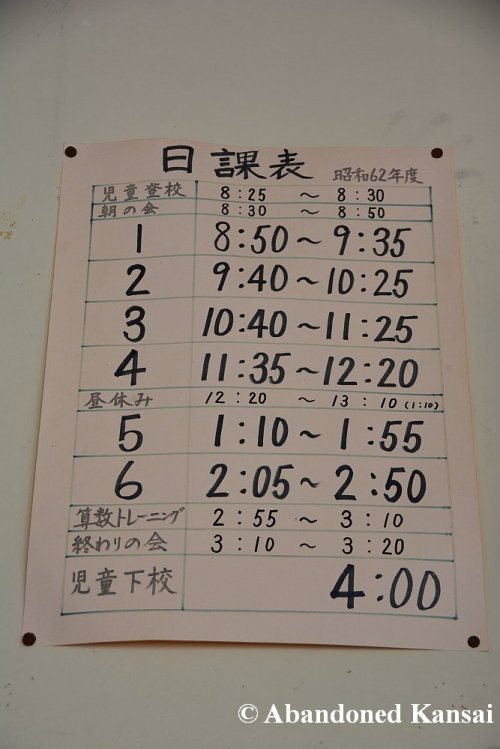 日課表 昭和62年度
児童登校 8:25 ～ 8:30
朝の会 8:30 ～ 8:50
1 8:50～9:35
2 9:40～10:25
3 10:40～11:25
4 11:35～12:20
昼休み 12:20 ～ 13:10 (1:10)
5 1:10～1:55
6 2:05～2:50
算数トレーニング 2:55 ～ 3:10
終わりの会 3:10 ～ 3:20
児童下校 4:00
© Abandoned Kansai